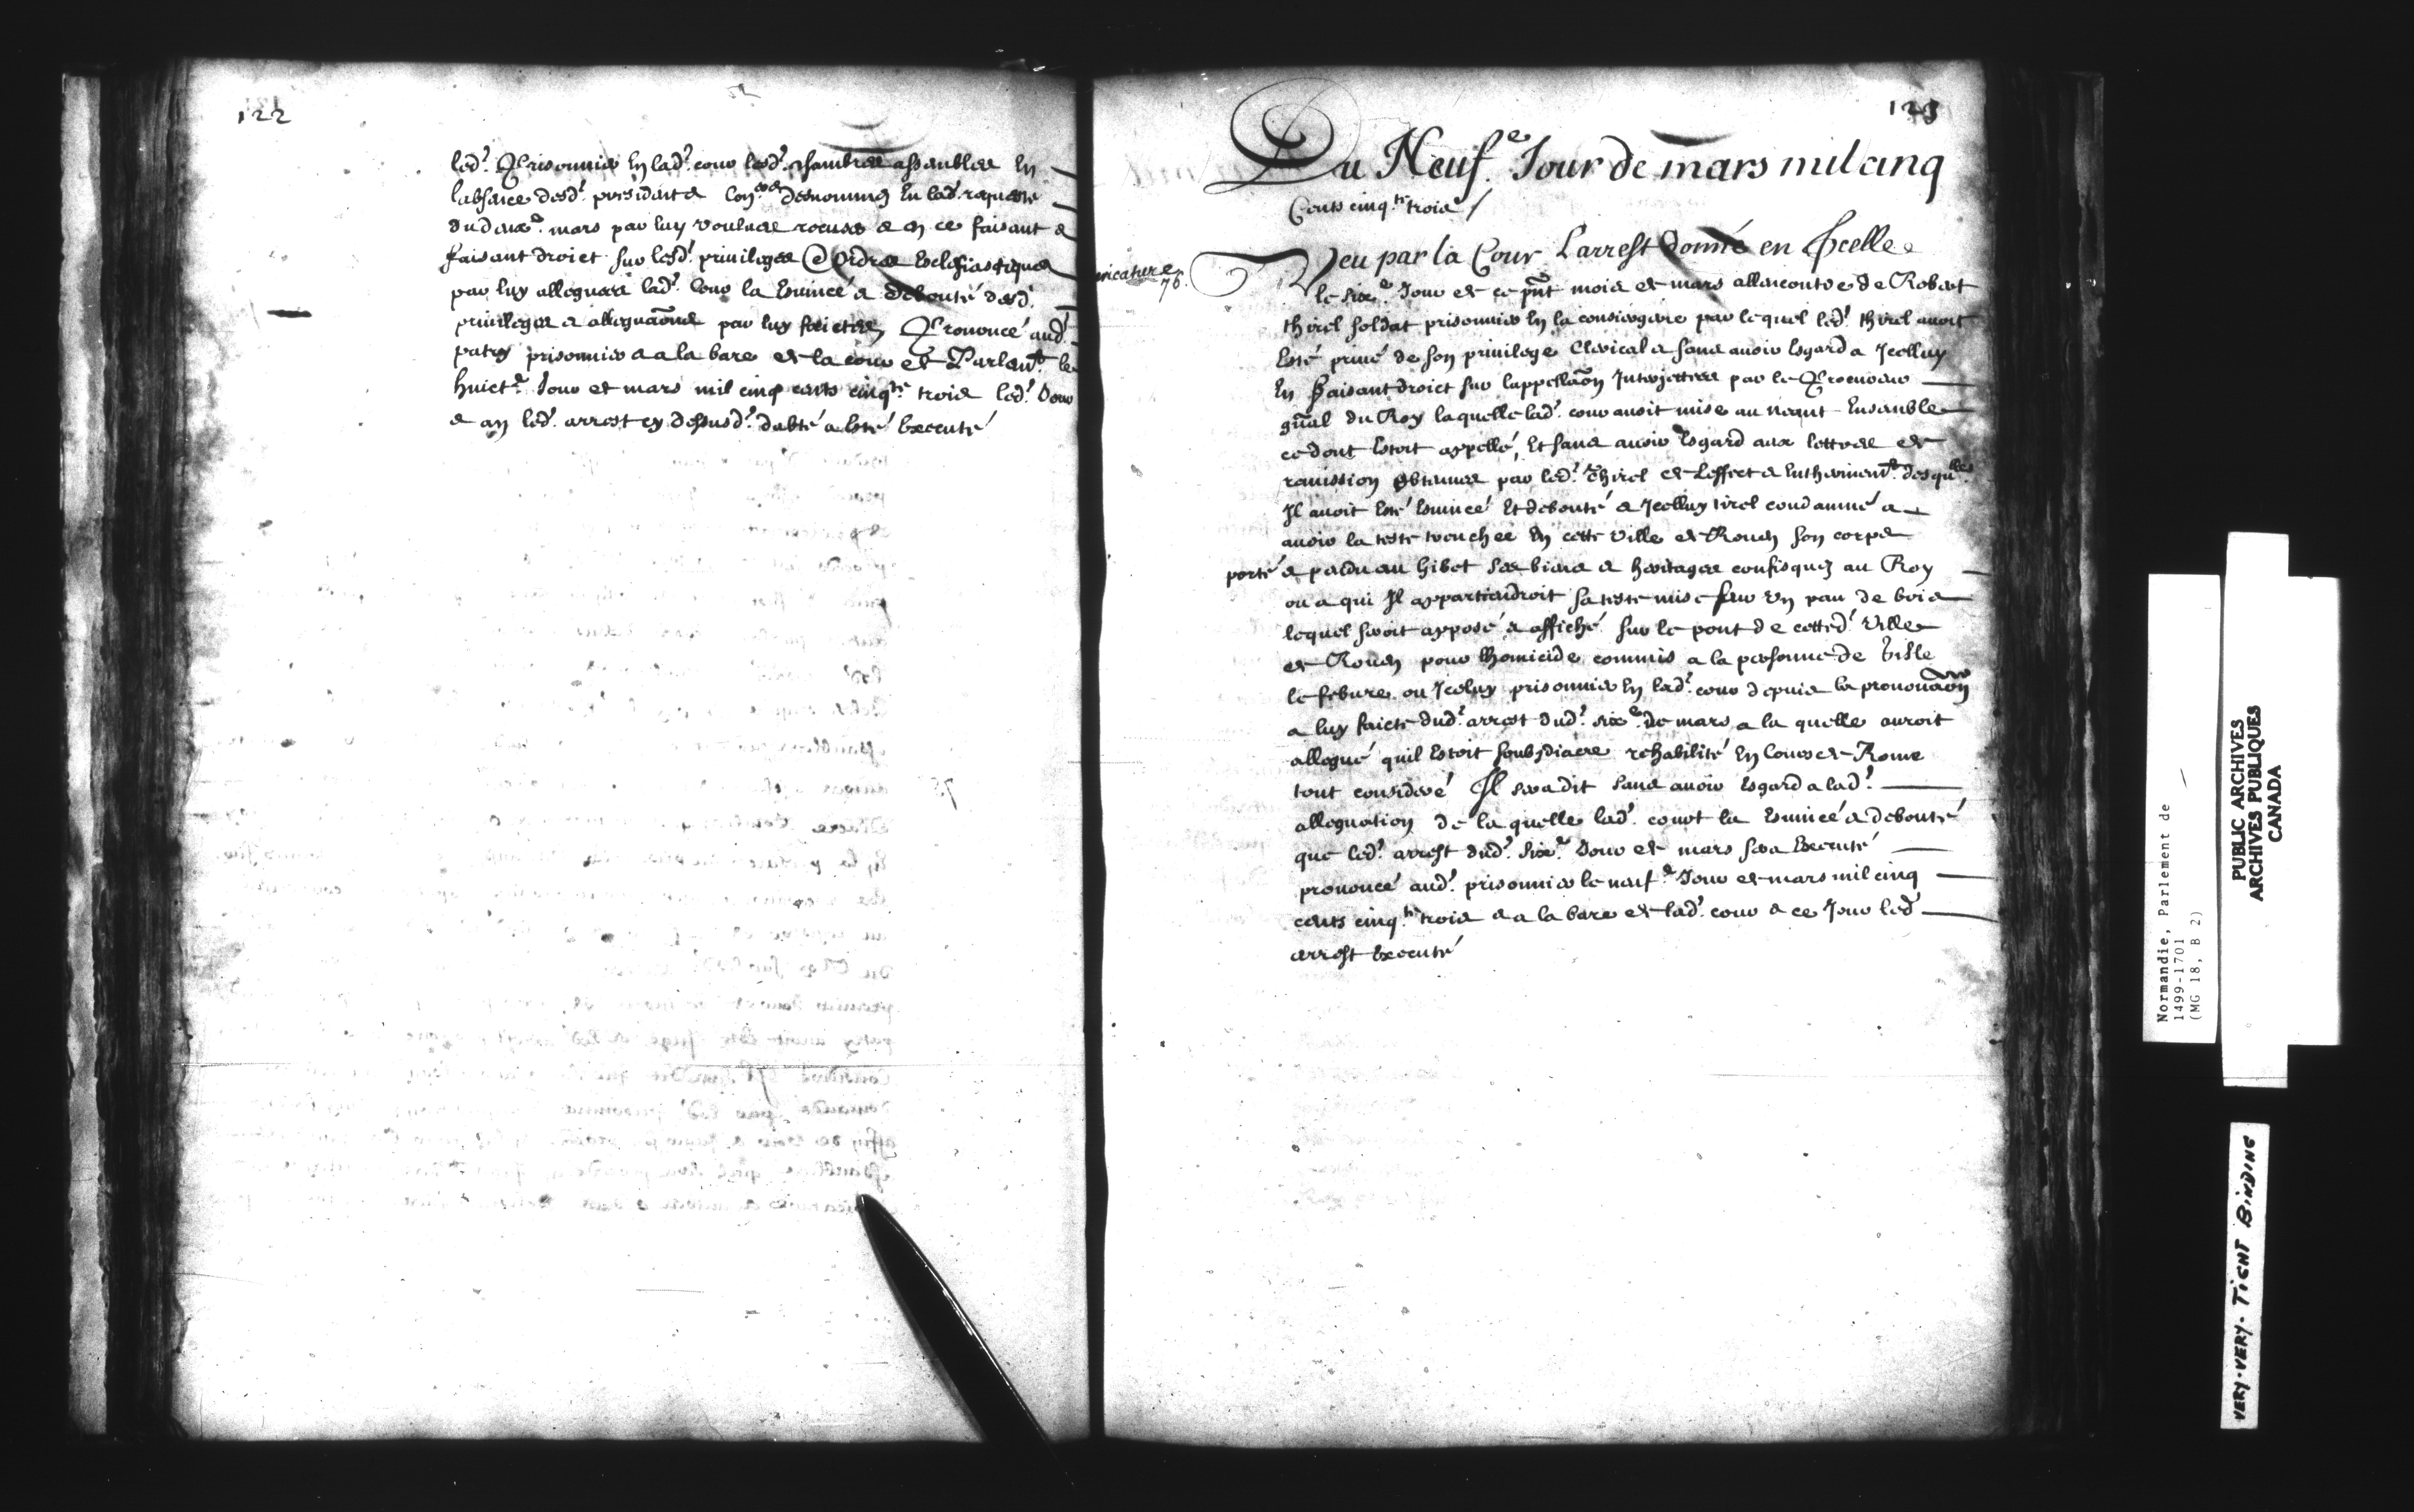 122
led.t Prisonnier En lad.t cour lesd.t chambres assemblees En
labsence desd.t presidents Con.ers desnommez En lad.t requeste
du deux.e mars par luy voulues recuser & en ce faisant &
faisant droict sur lesd.t privileges & Ordres Eclesiastiques
par luy alleguees lad.t Cour la Esvincé & debouté desd.t
privileges & alleguaõns par luy faictes, Prononcé aud.t
patry prisonnier a la bare de la cour de Parlem.t le
huict.e Jour de mars mil cinq cents cinq.te trois led.t Jour
& an led.t arrest cy dessusd.t datté a Esté Executé
123
Du Neuf.e Jour de mars mil cinq
Cents cinq.te trois /
ericature
76.
Veu par la Cour Larrest donné en Icelle
le six.e Jour de ce pñt mois de mars allencontre de Robert
thirel soldat prisonnier En la consiergerie par lequel led.t thirel avoit
Esté privé de son privilege Clerical & sans avoir Esgard a Icelluy
En faisant droict sur lappellaõn Interjettee par le Procureur
gñal du Roy laquelle lad.t cour avoit mise au neant Ensemble
ce dont Estoit appellé, Et sans avoir Esgard aux lettres de
remission obtenues par led.t thirel de Leffect & Entherinem.t desqu.lles
Il avoit Esté Esvincé Et debouté & Icelluy tirel condamné a
avoir la teste trenchee En cette ville de Rouen son corps
porté & pendu au Gibet ses biens & heritages confisquez au Roy
ou a qui Il appartiendroit sa teste mise sur un pau de bois
lequel seroit apposé & affiché sur le pont de cetted.t ville
de Rouen pour lhomicide commis a la personne de
le febure ou Iceluy prisonnier En lad.t cour depuis la prononciaõn
a luy faicte dud.t arrest dud.t six.e de mars a la quelle auroit
allegué quil Estoit soubsdiacre rehabilité En Cour de Rome
tout consideré Il sera dit sans avoir Esgard a lad.t
alleguation de la quelle lad.t court la Esvincé & debouté
que led.t arrest dud.t six.e Jour de mars sera Executé
prononcé aud.t prisonnier le neuf.e Jour de mars mil cinq
cents cinq.te trois a la bare de lad.t cour & ce Jour led.t
arrest Executé
Normandie, Parlement de
1499-1701
(MG 18, B 2)
PUBLIC ARCHIVES
ARCHIVES PUBLIQUES
CANADA
VERY-VERY-TIGHT BINDING